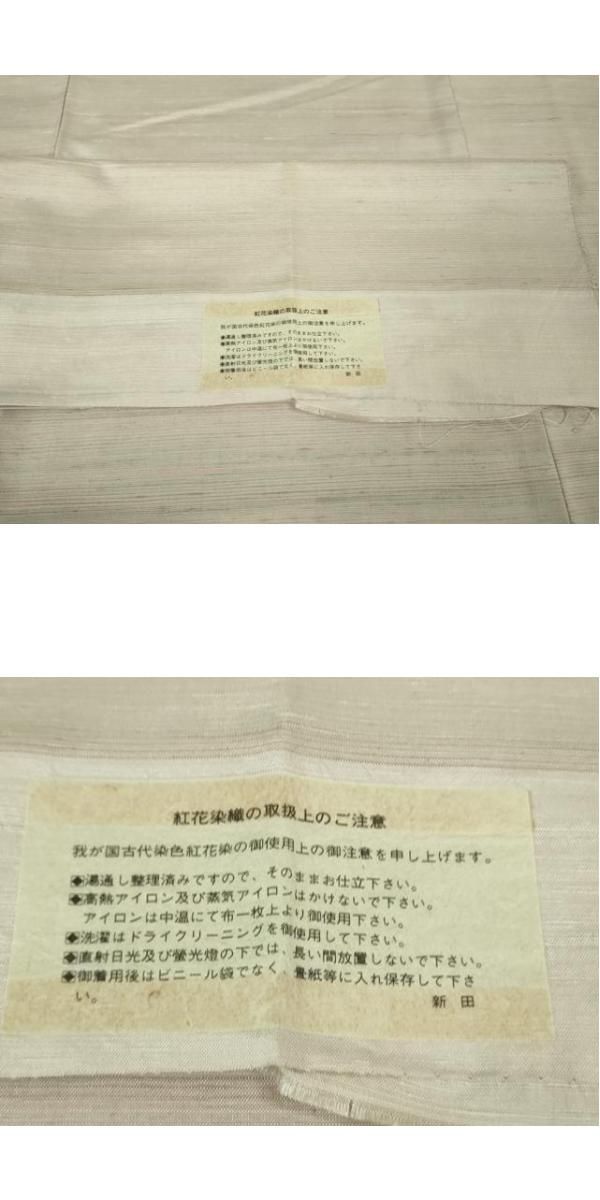 紅花染織の取扱上のご注意
我が国古代染色紅花染の御使用上の御注意を申し上げます。
◆湯通し整理済みですので、そのままお仕立下さい。
◆高熱アイロン及び蒸気アイロンはかけないで下さい。
アイロンは中温にて布一枚上より御使用下さい。
◆洗濯はドライクリーニングを御使用して下さい。
◆直射日光及び螢光燈の下では、長い間放置しないで下さい。
◆御着用後はビニール袋でなく、畳紙等に入れ保存して下さ
い。
新田
紅花染織の取扱上のご注意
我が国古代染色紅花染の御使用上の御注意を申し上げます。
◆湯通し整理済みですので、そのままお仕立下さい。
◆高熱アイロン及び蒸気アイロンはかけないで下さい。
アイロンは中温にて布一枚上より御使用下さい。
◆洗濯はドライクリーニングを御使用して下さい。
◆直射日光及び螢光燈の下では、長い間放置しないで下さい。
◆御着用後はビニール袋でなく、畳紙等に入れ保存して下さ
い。
新田